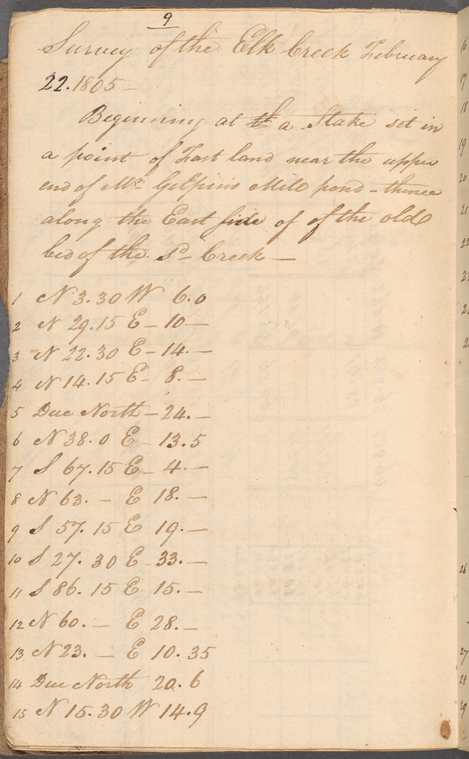 9
Survey of the Elk Creek February
22. 1805 —
Beginning at th a Stake set in
a point of Fast land near the upper
end of Mr Gilpin's Mill pond - thence
along the East side of of the old
bed of the Sd Creek —
1 N 3.30 W 6.0
2 N 29.15 E — 10 —
3 N 22.30 E — 14. —
4 N 14.15 E — 8. —
5 Due North — 24. —
6 N 38.0 E — 13.5
7 S 67.15 E — 4. —
8 N 63. — E 18. —
9 S 57.15 E 19. —
10 S 27.30 E — 33. —
11 S 86.15 E 15. —
12 N 60. — E 28. —
13 N 23. — E 10.35
14 Due North 20.6
15 N 15.30 W 14.9